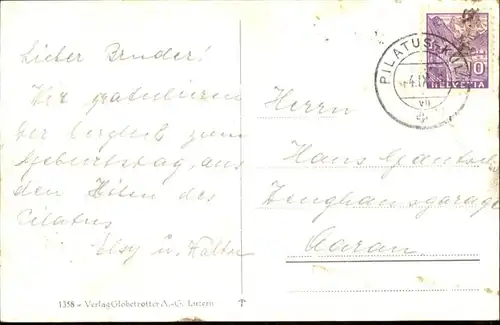 Lieber Bruder!
Wir gratulieren
Dir herzlich zum
Geburtstag aus
den Höhen des
Pilatus
Elsy u. Walter
1358 - Verlag Globetrotter A.-G. Luzern
PILATUS-KULM
4.IX.
VII
10
HELVETIA
Herrn
Hans
Zeughausgarage
Aarau.